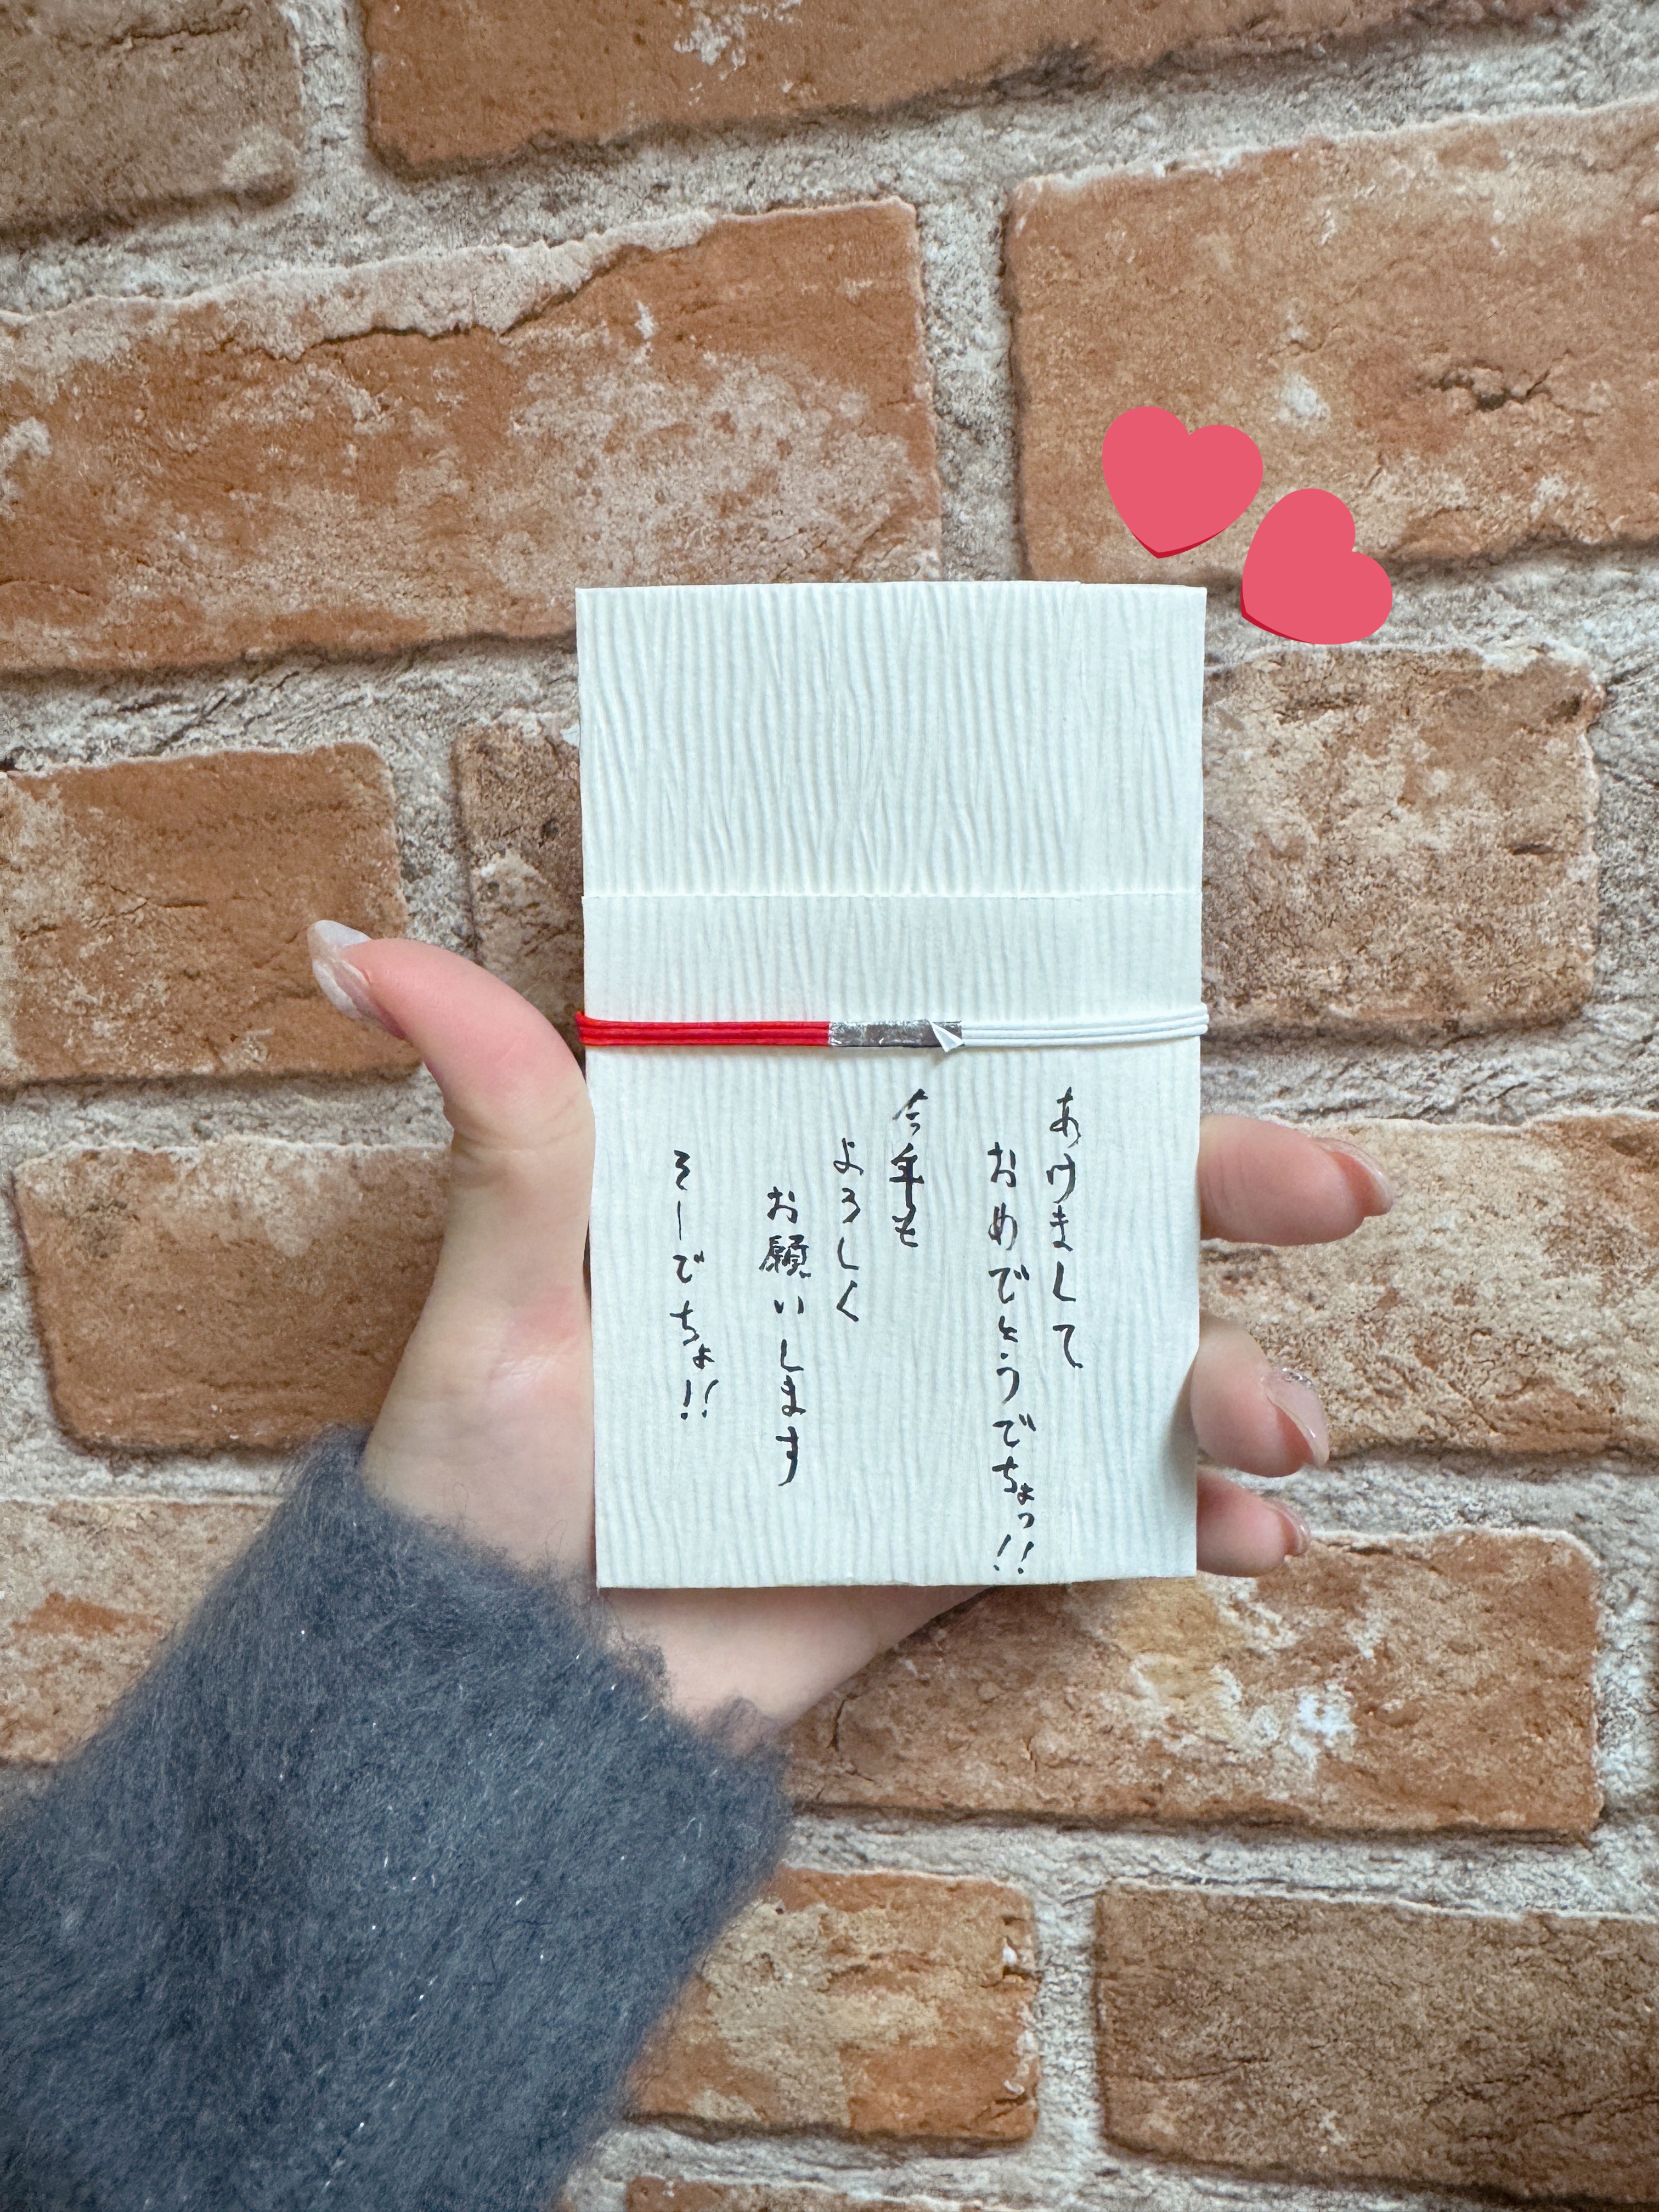 あけまして
おめでとうでちょっ!!
今年も
よろしく
お願いします
そーでちょ!!